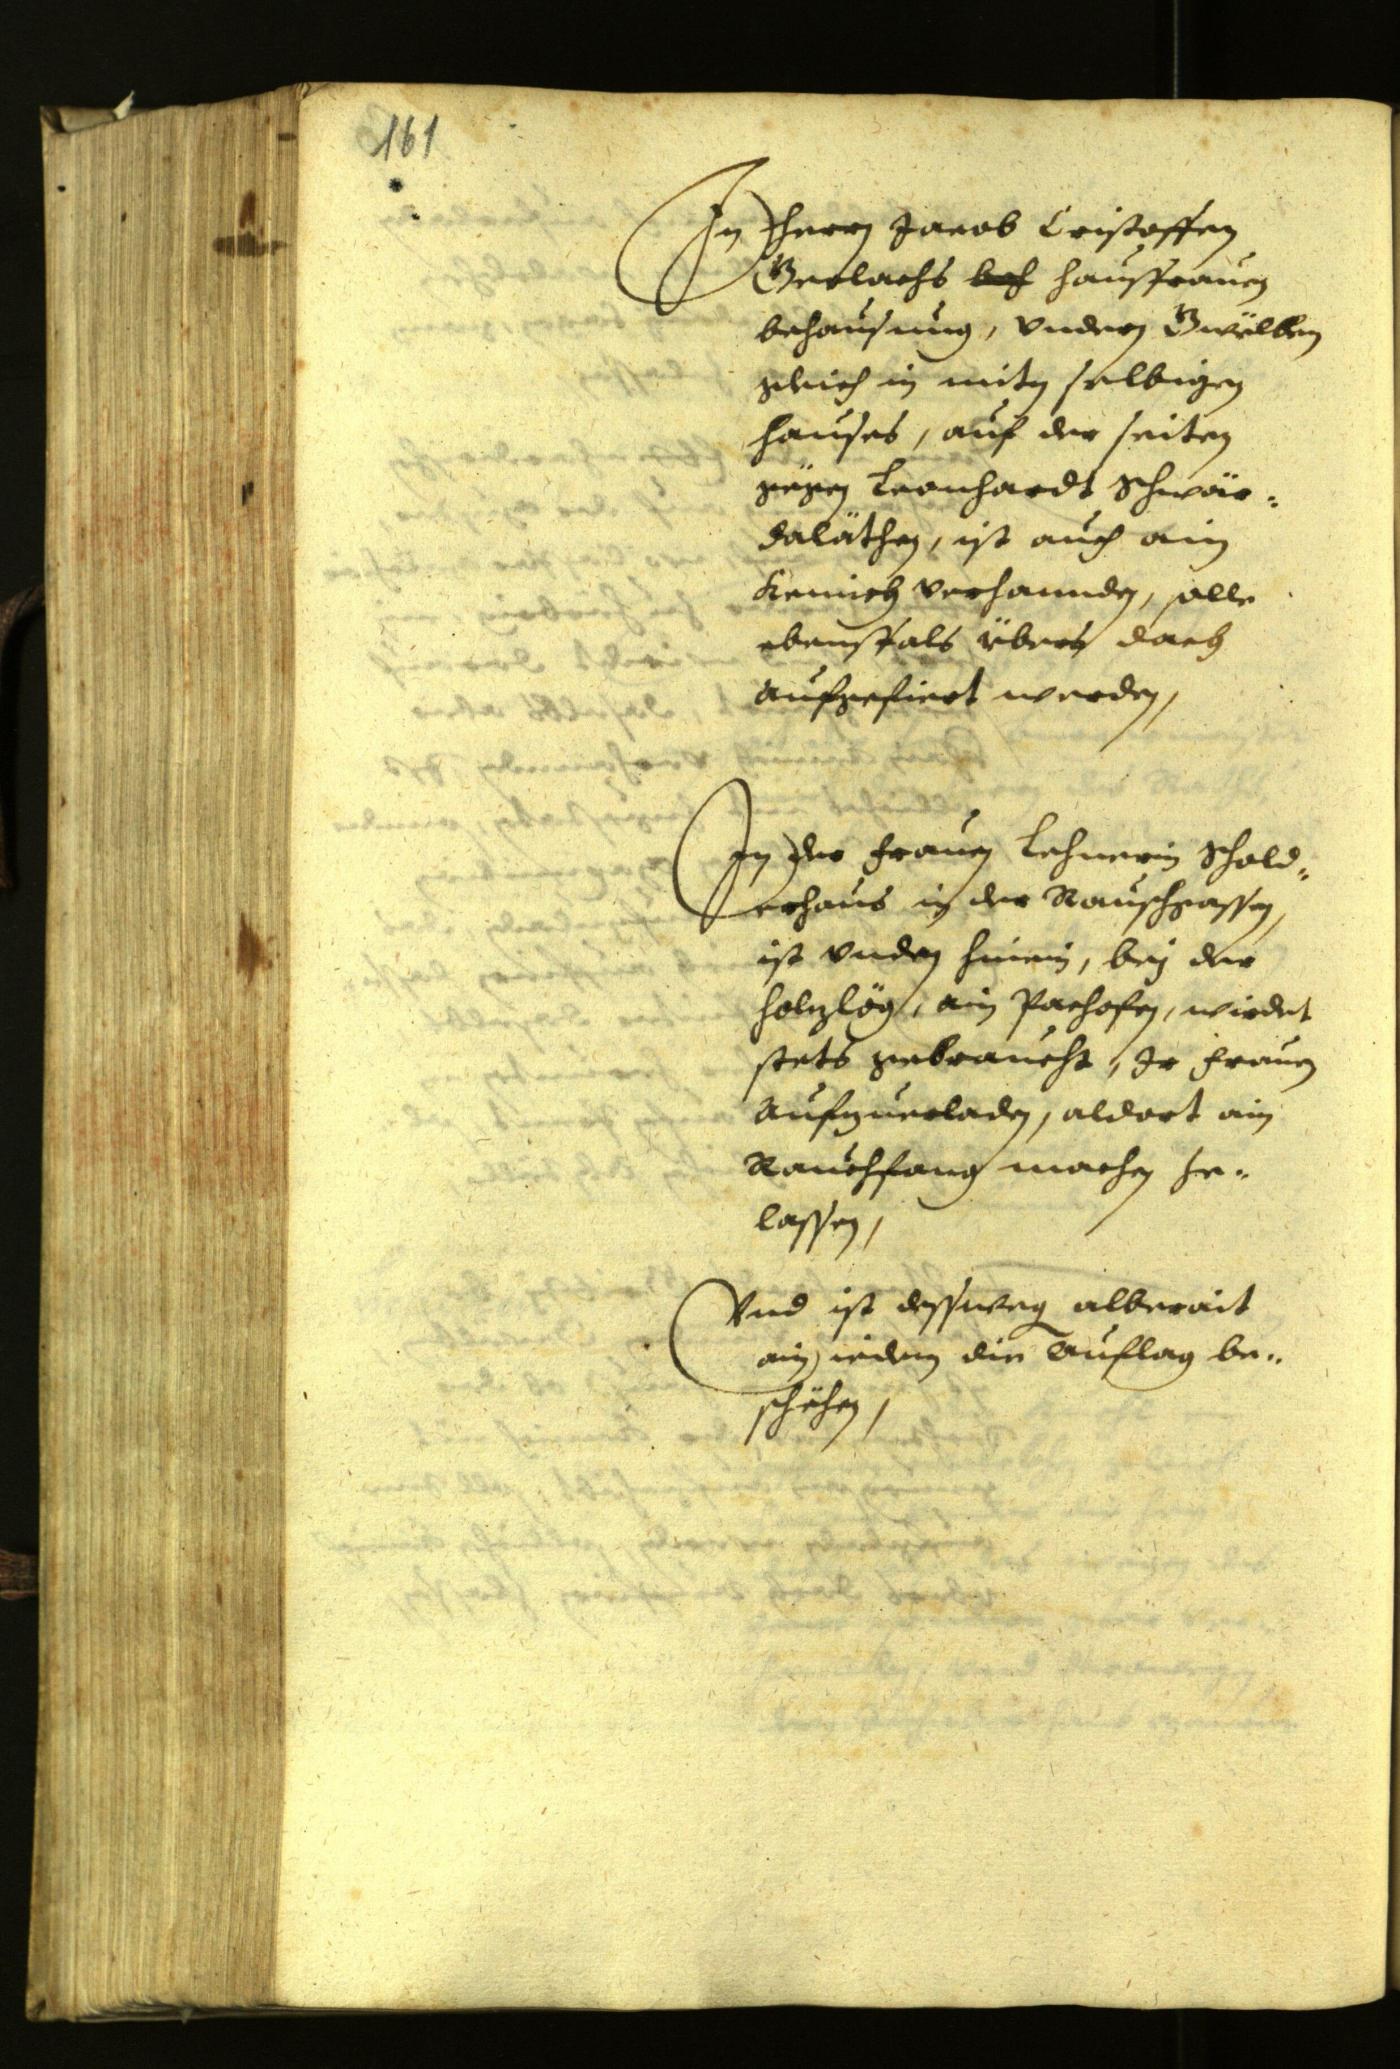 161
In Herrn Jacob Cristoffen
Gerlachs beh haussfrauen
behausung, undern Gwelben
gleich in mitn selbigen
hauses, auf der seiten
gegen Leonhardt Schwär„
daläthen, ist auch ain
Kemich verhannden, solle
ebensfals übers dach
aufgefiert werden,
In der Frauen Lehnerin Schold„
erhaus in der Rauschgassen,
ist unden hinein, bey der
holzlög, ain Pachofen, wirdet
stets gebraucht, Ir Frauen
Aufzuerladen, aldort ain
Rauchfang machen ze„
lassen,
Und ist dessweg alberait
ain iedem die Auflag be„
schehen,